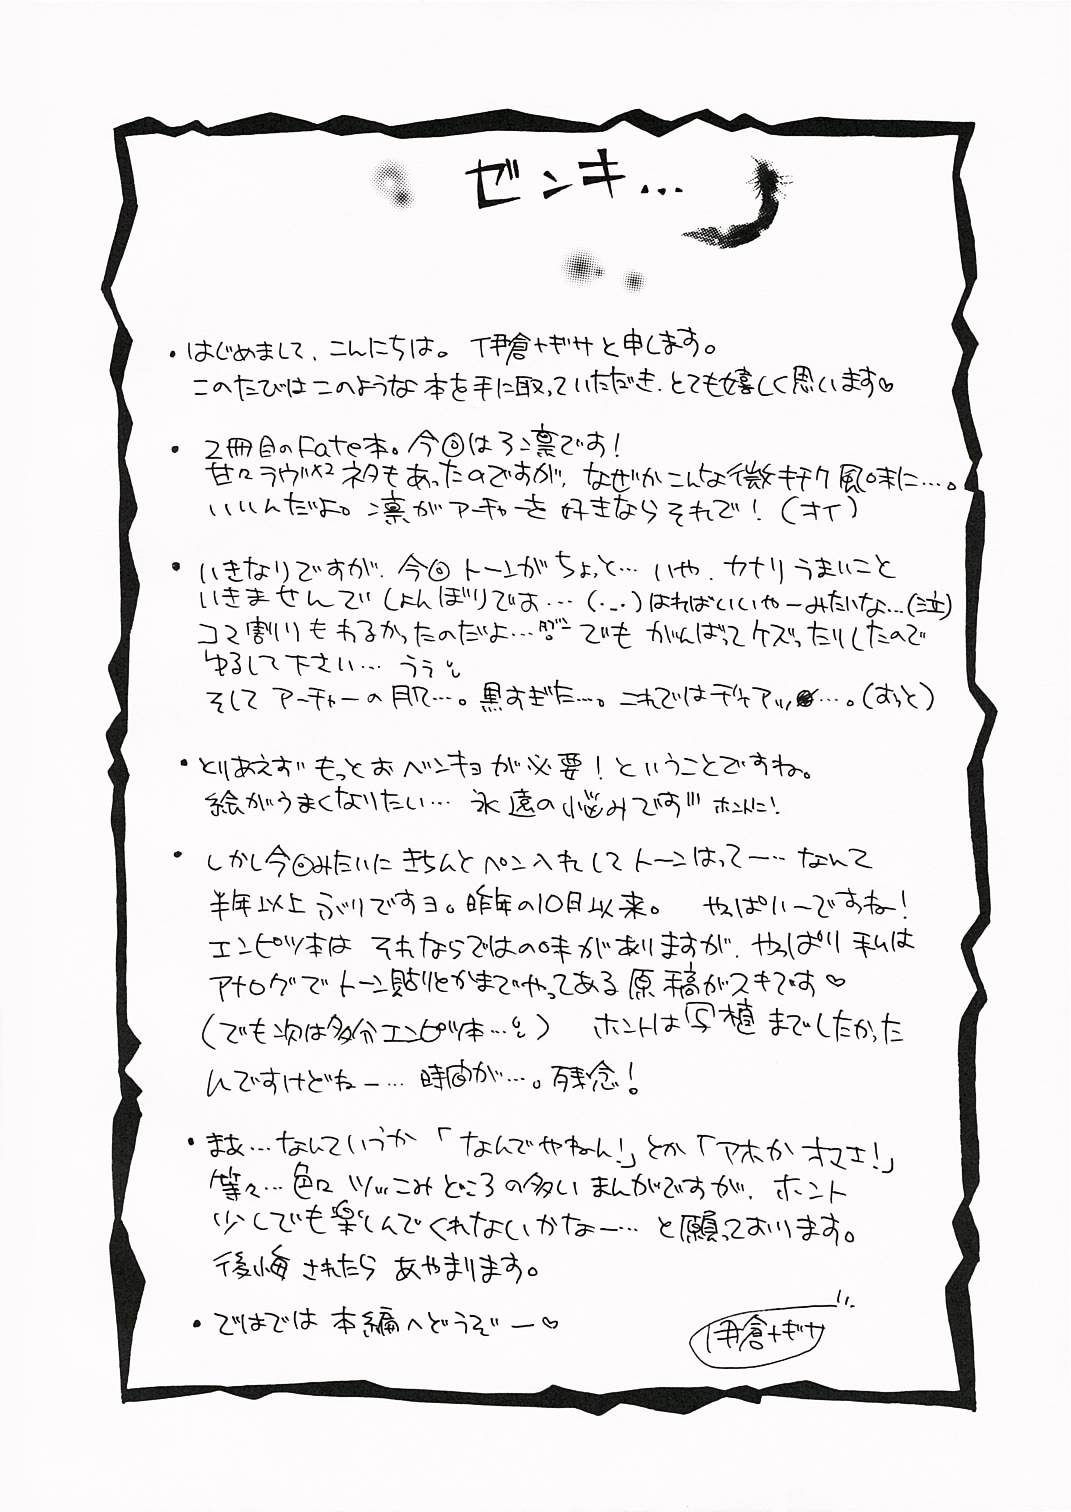 ゼンキ…
・はじめまして、こんにちは。伊倉ナギサと申します。
このたびはこのような本を手に取っていただき、とても嬉しく思います♡
・2冊目のFate本。今回は弓凛です!
甘々ラヴ×2ネタもあったのですが、なぜかこんな微キチク風味に…。
いいんだよ。凛がアーチャーを好きならそれで!(オイ)
・いきなりですが、今回トーンがちょっと…いや、カナリうまいこと
いきませんでしょんぼりです…(._.)はればいいやーみたいな…(泣)
コマ割りもわるかったのだよ…でもがんばってケズったりしたので
ゆるして下さい…うぅ
そしてアーチャーの肌…。黒すぎた…。これではディアッ…。(おっと)
・とりあえずもっとおベンキョが必要!ということですね。
絵がうまくなりたい…永遠の悩みです ホントに!
・しかし今回みたいにきちんとペン入れしてトーンはってー…なんて
半年以上ぶりですヨ。昨年の10月以来。やっぱいーですね!
エンピツ本はそれならではの味がありますが、やっぱり私は
アナログでトーン貼りとかまでやってある原稿がスキです♡
(でも次は多分エンピツ本…)ホントは写植までしたかった
んですけどねー…時間が…。残念!
・まあ…なんていうか「なんでやねん!」とか「アホかオマエ!」
等々…色々ツッこみどころの多いまんがですが、ホント
少しでも楽しんでくれないかなー…と願っております。
後悔されたらあやまります。
・ではでは本編へどうぞー♡
伊倉ナギサ